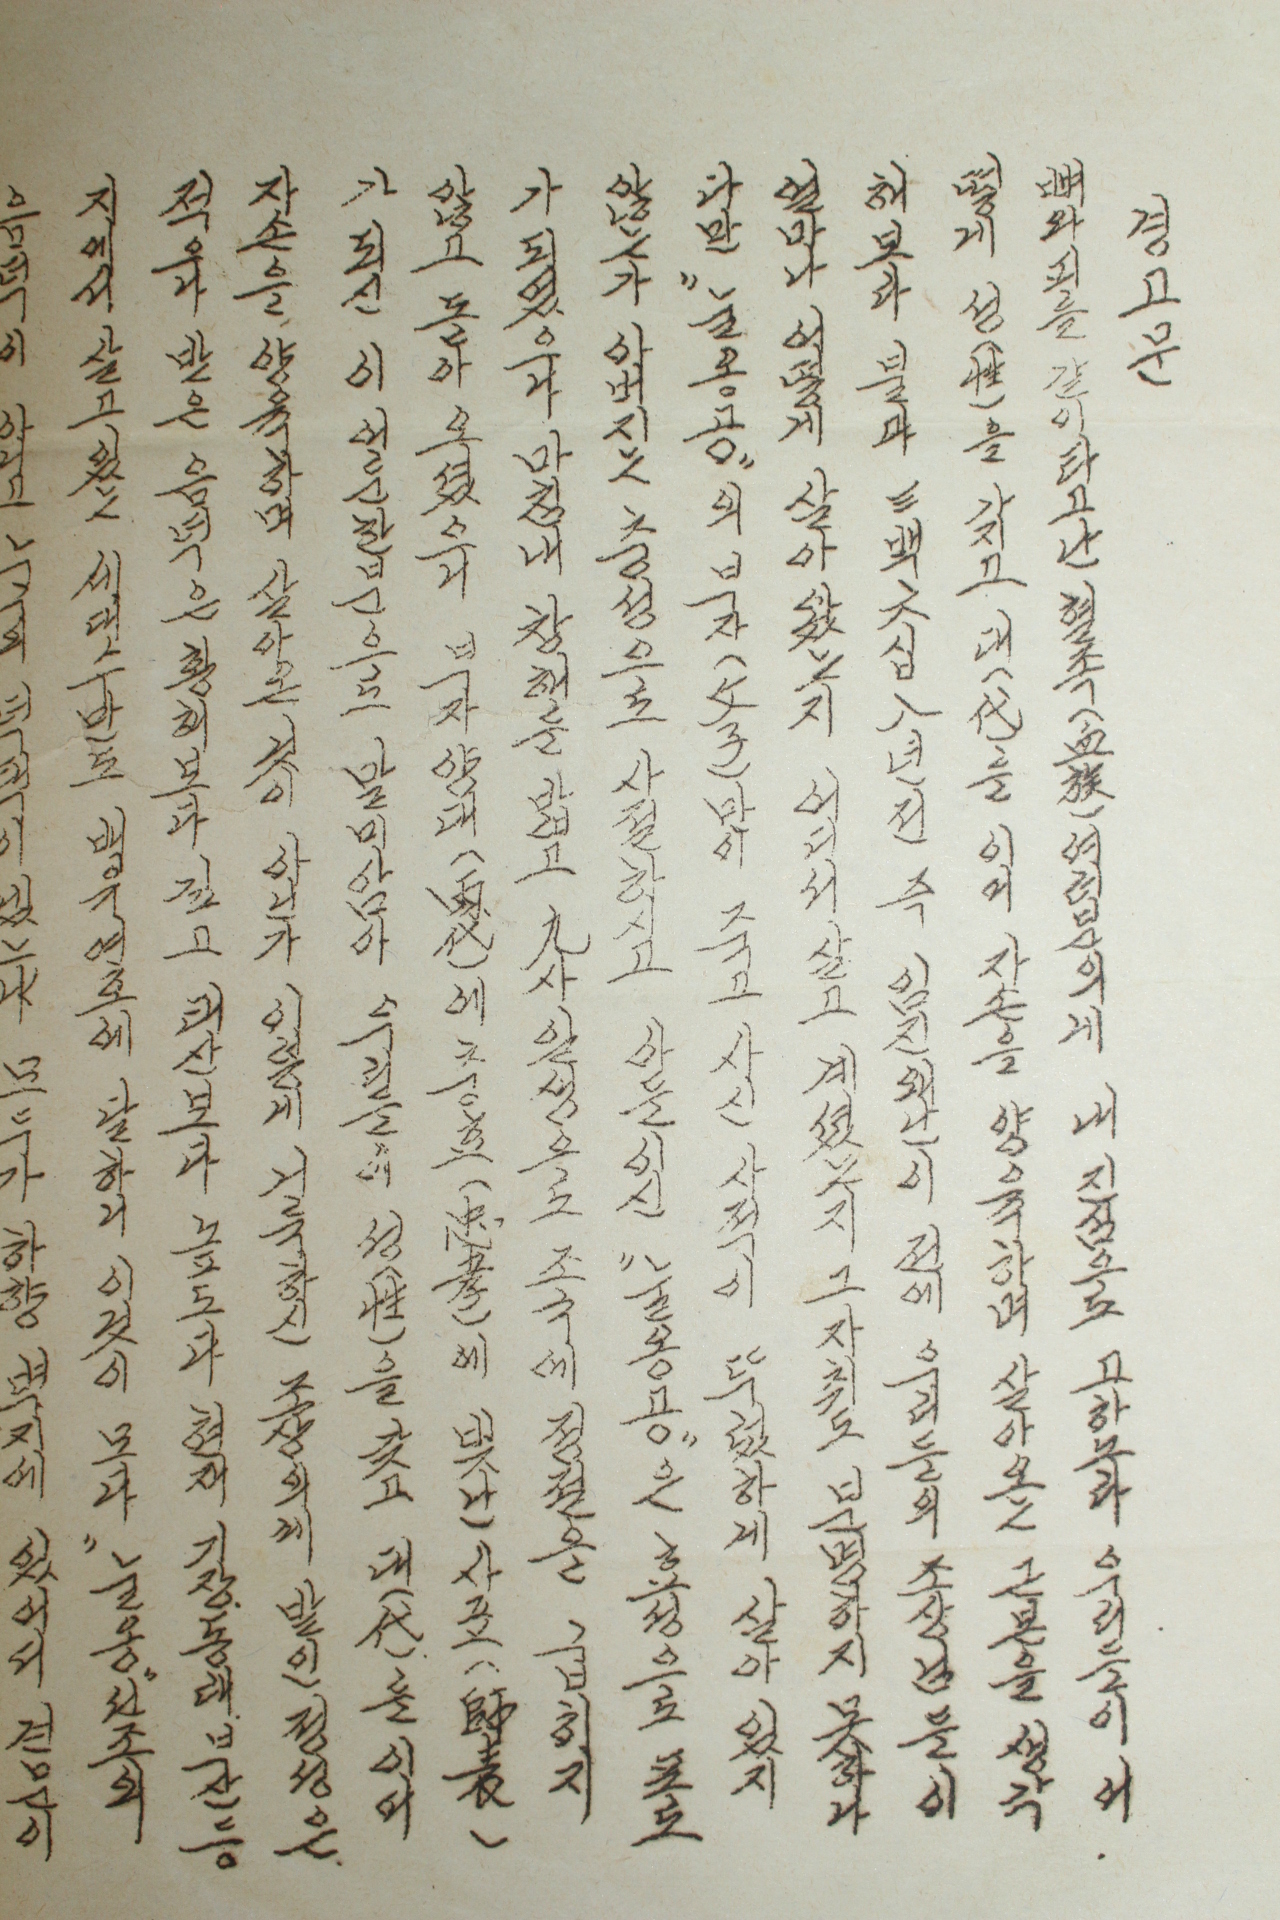 경고문
뼈와 피를 같이 타고난 혈족(血族) 여러분의게 내 진심으로 고하노라 우리들이 어
떻게 성(姓)을 가지고 대(代)를 이어 자손을 양육하며 살아온 근본을 생각
해보라 불과 三백六십八년전 즉 임진왜란이 전에 우리들의 조상님들이
얼마나 어떻게 살아 왔는지 어디서 살고 계셨는지 그 자취도 분명하지 못하라
다만 "눌옹공"의 부자(父子)만이 죽고 사신 사적이 뚜렸하게 살아 있지
않는가 아버지는 충성으로 사절하시고 아들이신 "눌옹공"은 효성으로 포로
가 되였우라 마침내 창해를 밟고 九사일생으로 조국에 정절을 굽히지
않고 돌아 오셨우니 부자 양대(兩代)에 충효(忠孝)에 빛난 사표(師表)
가 되신 이 어른한분으로 말미암아 우리들에 성(姓)을 갖고 대(代)를 이어
자손을 양육하며 살아온 것이 아닌가 이렇게 거룩하신 조상의게 받인 정성은
적우라 받은 음덕은 황해보다 깊고 태산보다 높도다 현재 기장, 동래, 부산 등
지에서 살고 있는 세대수만도 백구여호에 달하니 이것이 모다 "눌옹" 선조의
음덕이 아니고 누구의 덕택이 있는냐 모두가 하향 벽지에 있어서 견문이